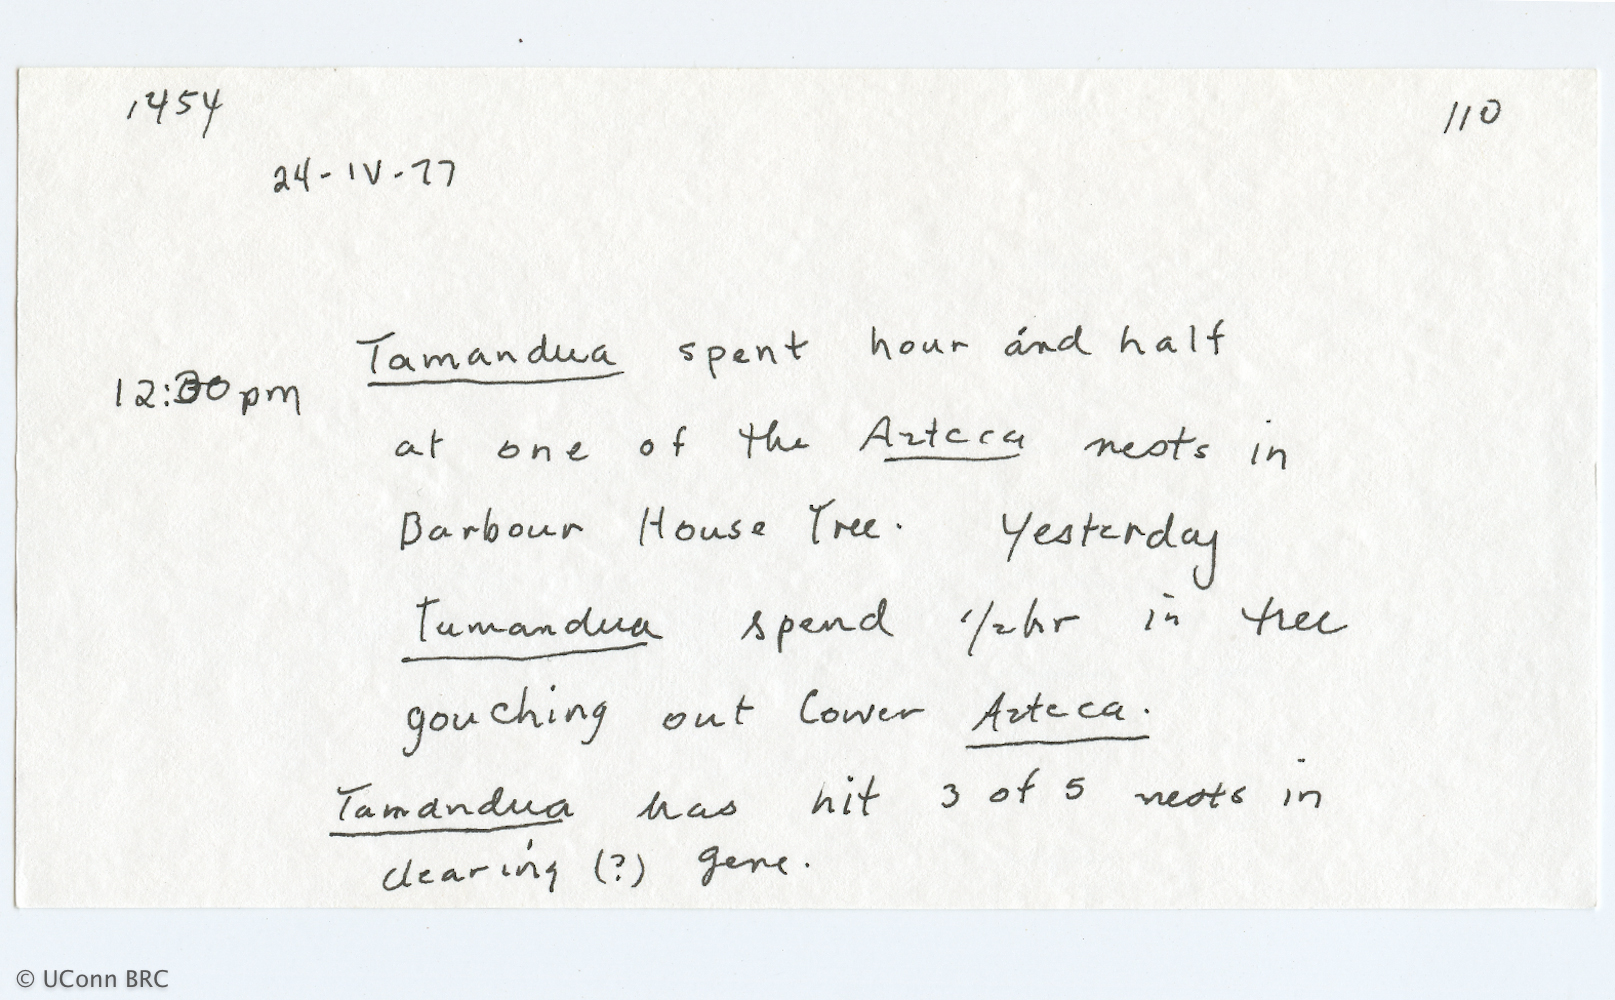 1454 110
24-IV-77
Tamandua spent hour and half
12:30pm
at one of the Azteca nests in
Barbour House Tree. Yesterday
Tamandua spend 1/2hr in tree
gouching out lower Azteca.
Tamandua has hit 3 of 5 nests in
clearing (?) gene.
© UConn BRC